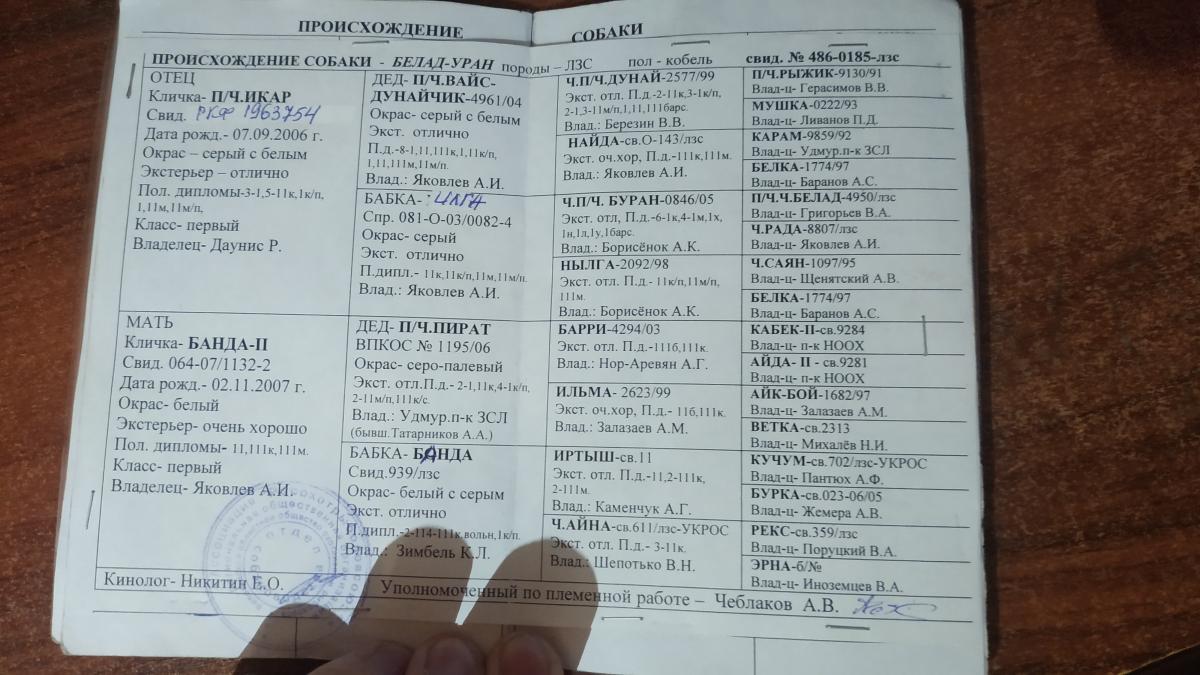 ПРОИСХОЖДЕНИЕ СОБАКИ
ПРОИСХОЖДЕНИЕ СОБАКИ - БЕЛАД-УРАН породы – ЛЗС пол - кобель свид. № 486-0185-лзс
ОТЕЦ
Кличка- П/Ч.ИКАР
Свид. РКФ 1963754
Дата рожд.- 07.09.2006 г.
Окрас – серый с белым
Экстерьер – отлично
Пол. дипломы-3-1,5-11к,1к/п,
1,11м,11м/п,
Класс- первый
Владелец- Даунис Р.
МАТЬ
Кличка- БАНДА-II
Свид. 064-07/1132-2
Дата рожд.- 02.11.2007 г.
Окрас- белый
Экстерьер- очень хорошо
Пол. дипломы- 11,111к,111м.
Класс- первый
Владелец- Яковлев А.И.
ДЕД- П/Ч.ВАЙС-
ДУНАЙЧИК-4961/04
Окрас- серый с белым
Экст. отлично
П.д.-8-1,11,111к,1,11к/п,
1,11,111м,11м/п.
Влад.: Яковлев А.И.
БАБКА-
Спр. 081-О-03/0082-4
Окрас- серый
Экст. отлично
П.дипл.- 11к,11к/п,11м,11м/п.
Влад.: Яковлев А.И.
ДЕД- П/Ч.ПИРАТ
ВПКОС № 1195/06
Окрас- серо-палевый
Экст. отл.П.д.- 2-1,11к,4-1к/п,
2-11м/п,111к/с.
Влад.: Удмур.п-к ЗСЛ
(бывш.Татарников А.А.)
БАБКА- БАНДА
Свид.939/лзс
Окрас- белый с серым
Экст. отлично
П.дипл.-2-114-111к.вольн,1к/п.
Влад.: Зимбель К.Л.
Ч.П/Ч.ДУНАЙ-2577/99
Экст. отл. П.д.-2-11к,3-1к/п,
2-1,3-11м/п,1,11,111барс.
Влад.: Березин В.В.
НАЙДА-св.О-143/лзс
Экст. оч.хор, П.д.-111к,111м.
Влад.: Яковлев А.И.
Ч.П/Ч. БУРАН-0846/05
Экст. отл, П.д.-6-1к,4-1м,1х,
1н,1л,1у,1барс.
Влад.: Борисёнок А.К.
НЫЛГА-2092/98
Экст. отл. П.д.- 11к/п,11м/п,
111м.
Влад.: Борисёнок А.К.
БАРРИ-4294/03
Экст. отл. П.д.-111б,111к.
Влад.: Нор-Аревян А.Г.
ИЛЬМА- 2623/99
Экст. оч.хор, П.д.- 11б,111к.
Влад.: Залазаев А.М.
ИРТЫШ-св.11
Экст. отл. П.д.-11,2-111к,
2-111м.
Влад.: Каменчук А.Г.
Ч.АЙНА-св.611/лзс-УКРОС
Экст. отл. П.д.- 3-11к.
Влад.: Шепотько В.Н.
П/Ч.РЫЖИК-9130/91
Влад-ц- Герасимов В.В.
МУШКА-0222/93
Влад-ц- Ливанов П.Д.
КАРАМ-9859/92
Влад-ц- Удмур.п-к ЗСЛ
БЕЛКА-1774/97
Влад-ц- Баранов А.С.
П/Ч.Ч.БЕЛАД-4950/лзс
Влад-ц- Григорьев В.А.
Ч.РАДА-8807/лзс
Влад-ц- Яковлев А.И.
Ч.САЯН-1097/95
Влад-ц- Щенятский А.В.
БЕЛКА-1774/97
Влад-ц- Баранов А.С.
КАБЕК-II-св.9284
Влад-ц- п-к НООХ
АЙДА- II - св.9281
Влад-ц- п-к НООХ
АЙК-БОЙ-1682/97
Влад-ц- Залазаев А.М.
ВЕТКА-св.2313
Влад-ц- Михалёв Н.И.
КУЧУМ-св.702/лзс-УКРОС
Влад-ц- Пантюх А.Ф.
БУРКА-св.023-06/05
Влад-ц- Жемера А.В.
РЕКС-св.359/лзс
Влад-ц- Поруцкий В.А.
ЭРНА-б/№
Влад-ц- Иноземцев В.А.
Кинолог- Никитин Е.О. Уполномоченный по племенной работе – Чеблаков А.В.